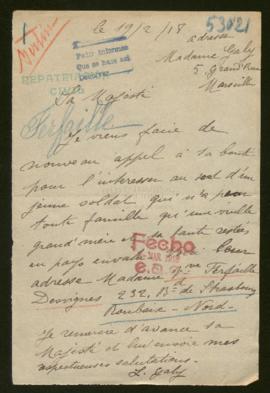 le 19/2/18
53021
adresse
Madame Galy
5 grand rue
Marseille
Berlin
Pedir informes
Que se hace asi
REPATRIACION
CIVIL
Sa Majesté
Terfaille
Je viens faire de
nouveau appel à sa bonté
pour l'intéresser au sort d'un
jeune soldat, qui n'a pour
toute famille qu'une vieille
grand'mère et sa tante restés
en pays envahi
Fecho
MAR. 1918
E.D.
adresse Madame Vve Terfaille
Desvignes 232, Bd de Strasbourg
Roubaix - Nord -
Je remercie d'avance sa
Majesté et lui envoie mes
respectueuses salutations.
L. Galy